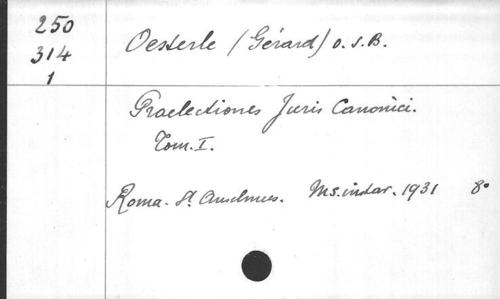 250
314
1
Oesterle (Gérard) O.S.B.
Praelectiones Juris Canonici.
Tom. I.
Roma. St. Anselmus. Ms. instar. 1931 8°